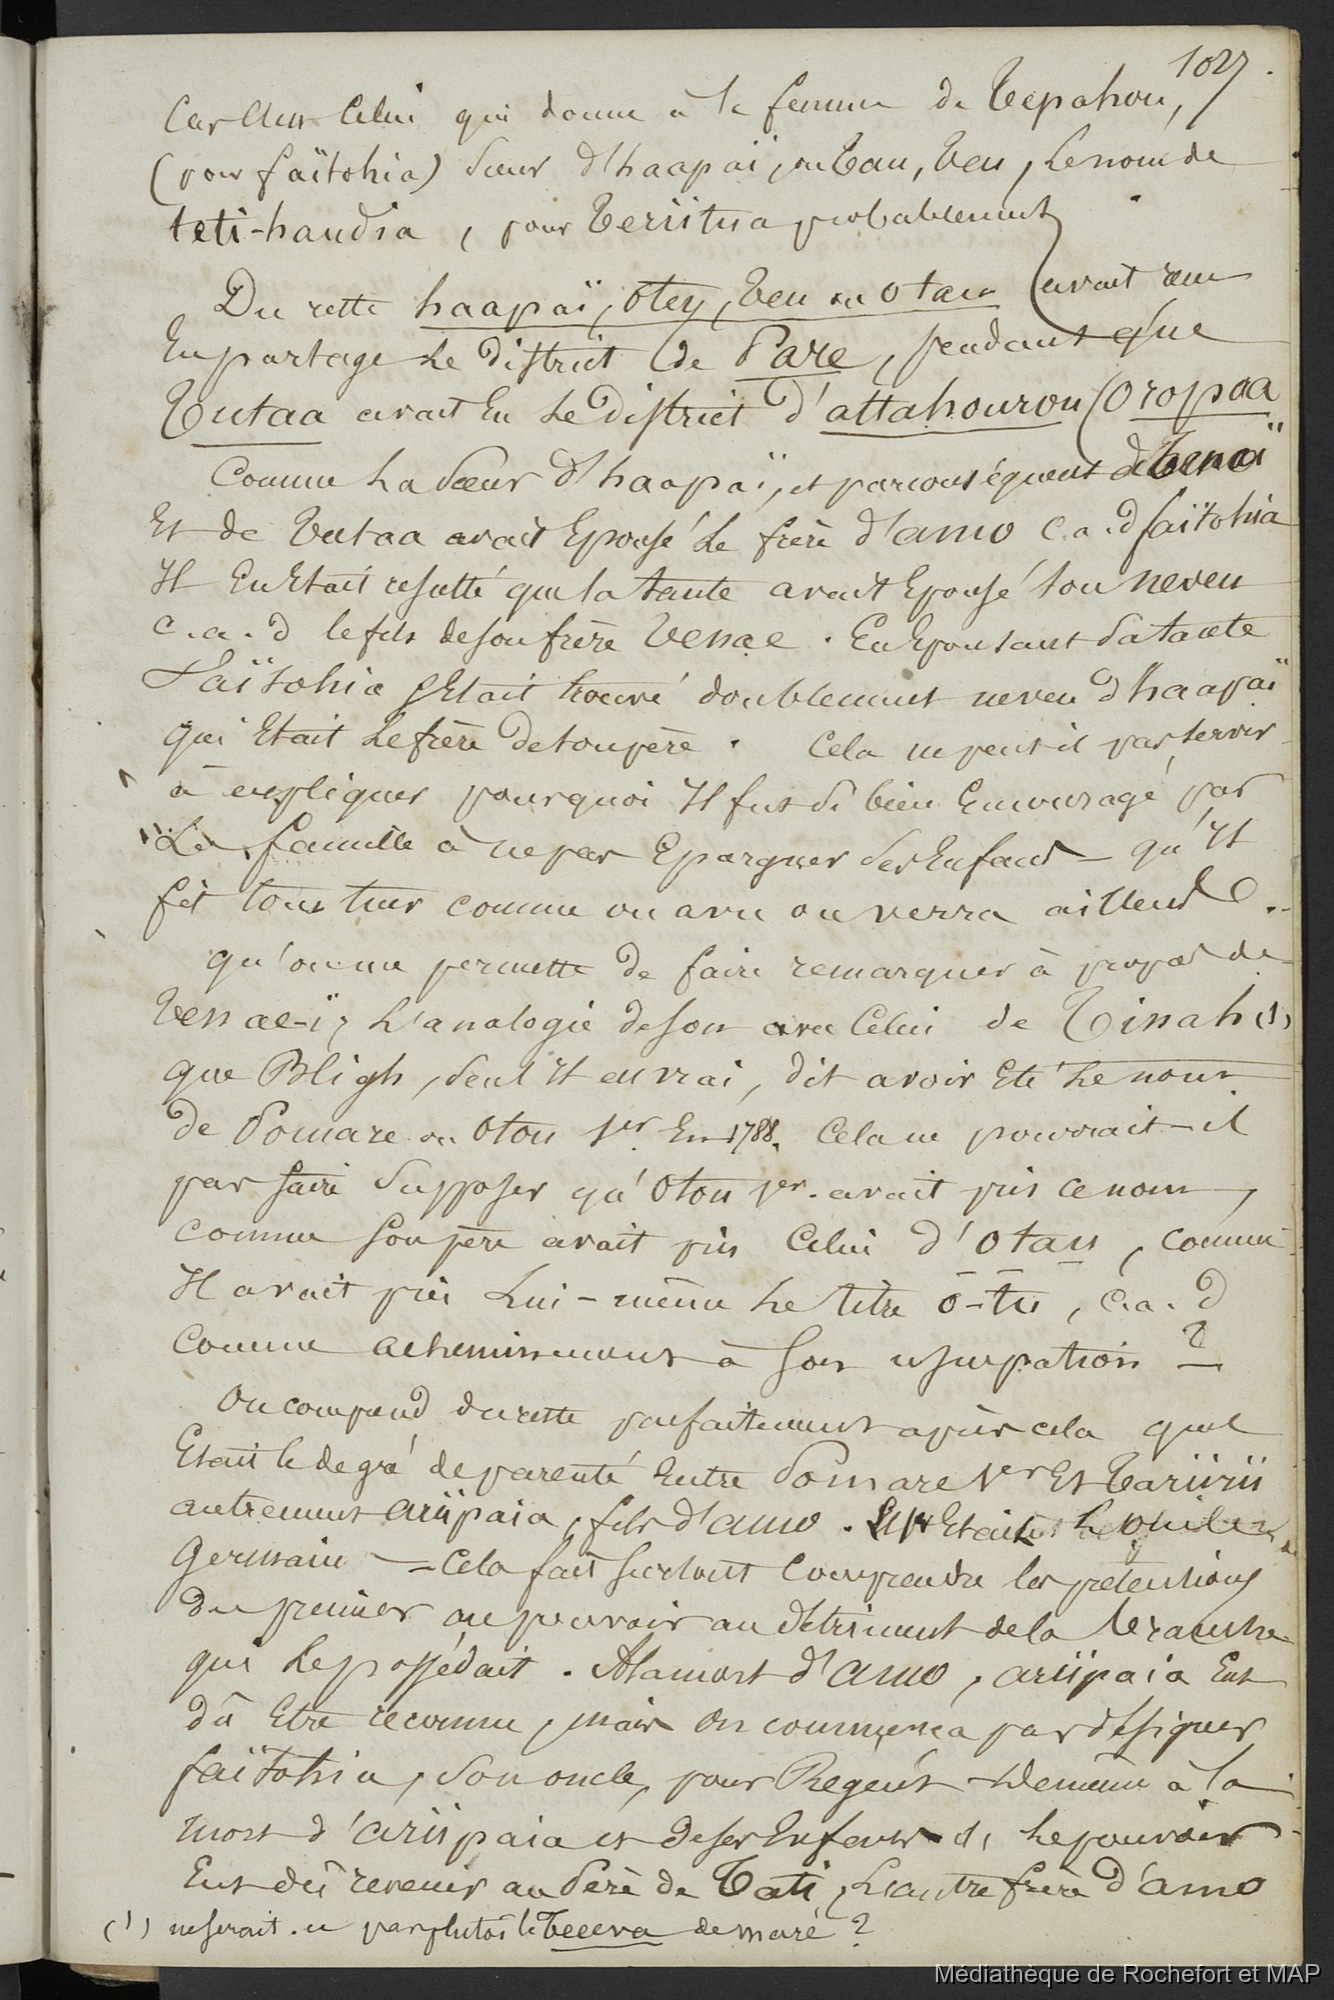 1027.
Car c'est celui qui donne à la femme de Tepahou,
(pour faïtohia) sœur d'haapaï, ou Tau, Teu, le nom de
teti-haudia, pour Teriitua probablement
Du reste haapaï, otey, Teu ou otau avait reçu
En partage Le District de Pare, pendant que
Tutaa avait Eu Le District d'attahourou (Oropaa
Comme La Sœur d'haapaï, et par conséquent de Tenaï
Et de Tutaa avait Epousé Le frère d'amo c.a.d faïtohia
Il En Etait resulté que la tante avait Epousé son neveu
c.a.d le fils de son frère Tenae. En Epousant Sa tante
Faïtohia s'Etait trouvé doublement neveu d'haapaï
qui Etait Le frère de son père. Cela ne peut-il pas servir
à expliquer pourquoi Il fut si bien Encouragé par
La famille à ne pas Epargner Ses Enfants - qu'Il
fit tous tuer comme on a vu ou verra ailleurs.
qu'on me permette de faire remarquer à propos de
Tenae-ï, L'analogie de son avec Celui de Tinah (1)
que Bligh, seul il est vrai, dit avoir Eté Le nom
de Pomare ou Otou 1er En 1788. Cela ne pourrait-il
pas faire Supposer qu'Otou 1er. avait pris ce nom,
comme son père avait pris Celui d'Otau, comme
Il avait pris Lui-même Le titre ō-tū, c.a.d
comme acheminement à son usurpation ?
On comprend du reste parfaitement après cela quel
Etait le degré de parenté Entre Pomare 1er Et Tariirii
autrement ariipaia, fils d'amo. Il Etait
Germain - Cela fait surtout comprendre les prétentions
du premier au pouvoir au détriment de la branche
qui Le possédait. A la mort d'amo, ariipaia Eut
dû Etre reconnu, mais on commença par désigner
faïtohia, Son oncle, pour Régent - De même à la
mort d'ariipaia et de ses Enfants, Le pouvoir
Eut dû revenir au Père de Tati, L'autre frère d'amo
(1) ne serait-ce pas plutôt le Teeeva de maré ?
Médiathèque de Rochefort et MAP